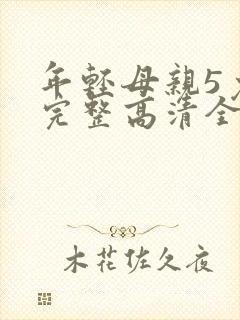 年轻母親5
完整高清全
木花佐久夜